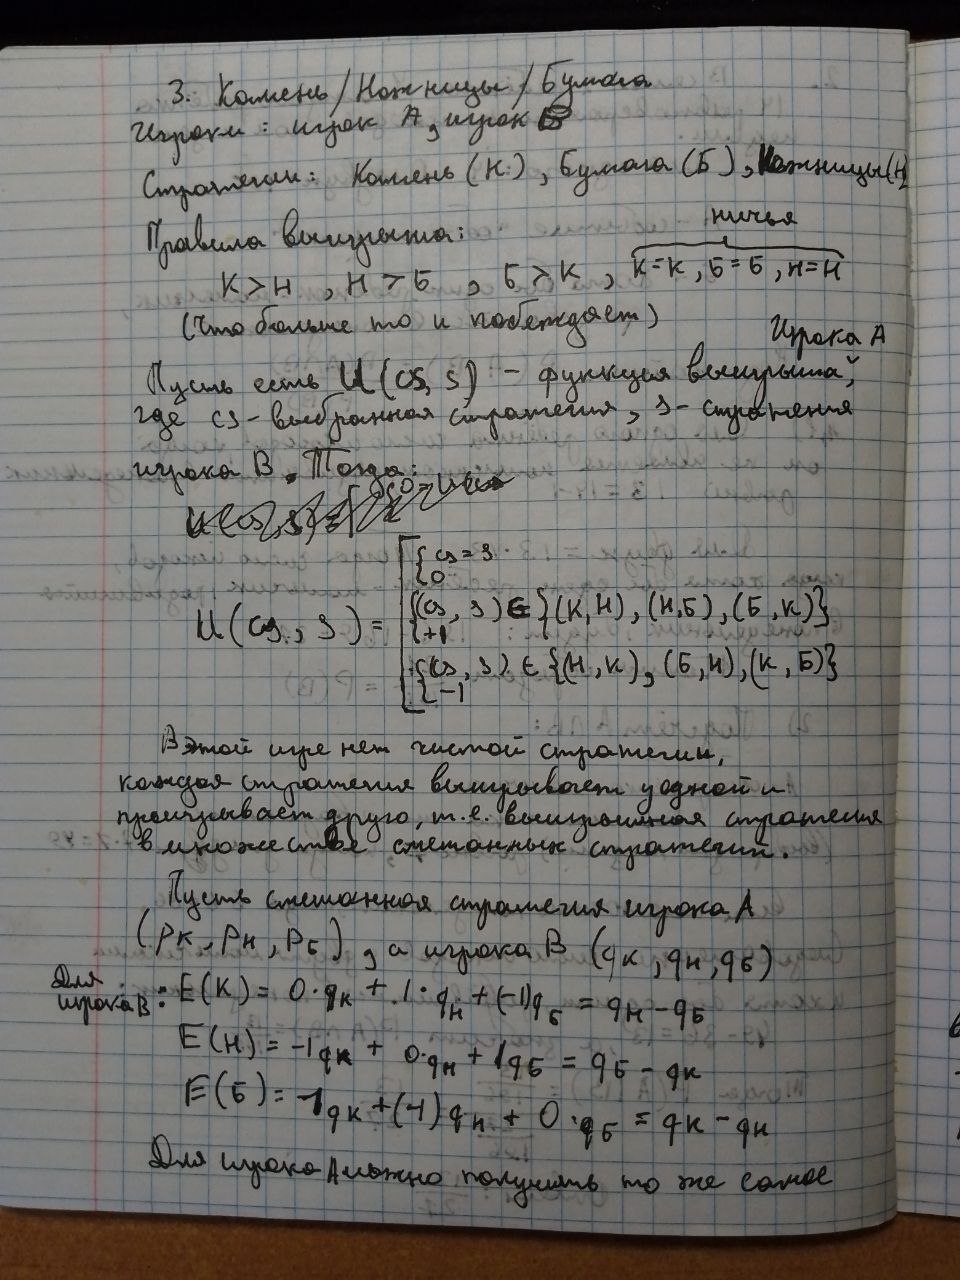 3. Камень/Ножницы/Бумага
Игроки: игрок А, игрок Б
Стратегии: Камень (К), Бумага (Б), Ножницы (Н)
Правила выигрыша:
ничья
К > Н, Н > Б, Б > К, К=К, Б=Б, Н=Н
(Что больше то и побеждает)
Игрока А
Пусть есть U(cs, s) - функция выигрыша,
где cs - выбранная стратегия, s - стратегия
игрока В, Тогда:
U(cs, s) = [ { cs = s
{ 0
{ (cs, s) ∈ {(К,Н), (Н,Б), (Б,К)}
{ +1
{ (cs, s) ∈ {(Н,К), (Б,Н), (К,Б)}
{ -1
В этой игре нет чистой стратегии,
каждая стратегия выигрывает у одной и
проигрывает друго, т.е. выигрышная стратегия
в множестве смешанных стратегий.
Пусть смешанная стратегия игрока А
(Pк, Pн, Pб), а игрока В (qк, qн, qб)
Для игрока В: E(К) = 0·qк + 1·qн + (-1)qб = qн - qб
E(Н) = -1qк + 0·qн + 1qб = qб - qк
E(Б) = 1qк + (-1)qн + 0·qб = qк - qн
Для игрока А можно получить то же самое